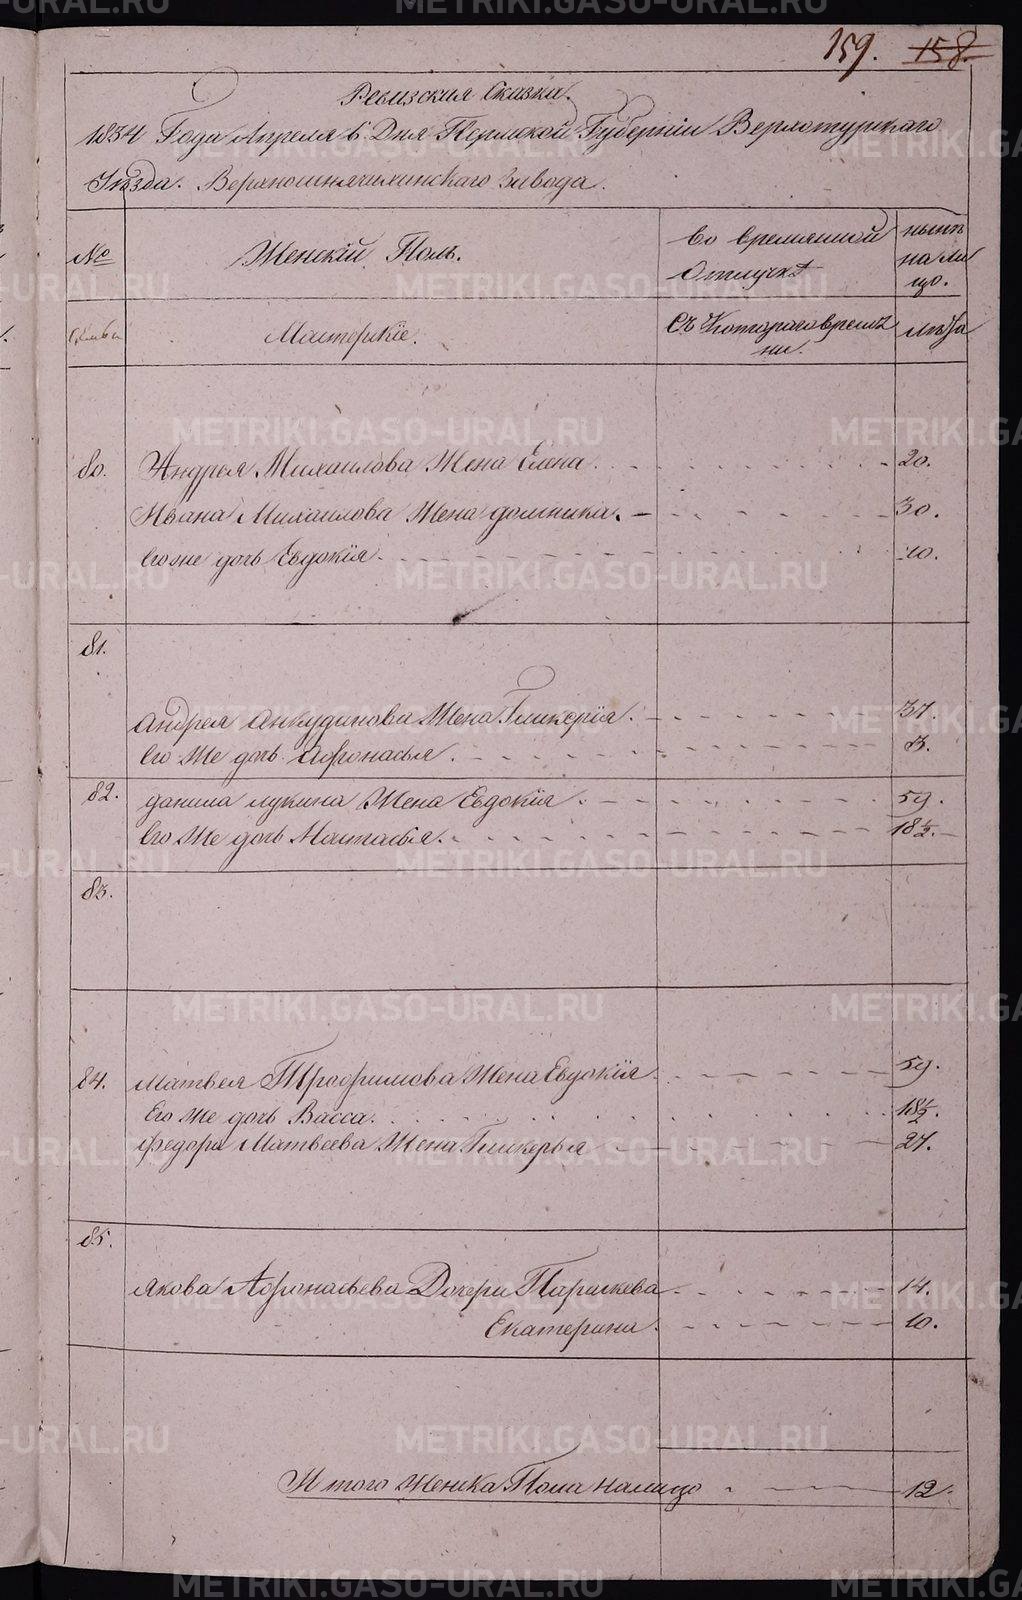 159. 158.
Ревизския Сказки.
1834 Года Апреля 6 Дня Пермской Губернiи Верхотурскаго
Уѣзда. Верхнесинячихинскаго Завода.
№ Женскiй Полъ. Во времянной Отлучкѣ нынѣ на лицо.
Мастерскiе. Съ Котораго времени. лѣта
80. Андрея Михаилова Жена Елена 20.
Ивана Михаилова Жена домника. 30.
Его же дочь Евдокiя. 10.
81.
Андрея Анкудинова Жена Гликерiя. 37.
Его Же дочь Афонасья. 3.
82. данила лукина Жена Евдокiя. 59.
Его Же дочь Настасья. 18½.
83.
84. Матвея Трофимова Жена Евдокiя 59.
Его Же дочь Васса. 18½.
Федора Матвеева Жена Гликерья 27.
85.
Якова Афонасьева Дочери Парискева 14.
Екатерина. 10.
Итого Женска Пола налицо 12.
METRIKI.GASO-URAL.RU